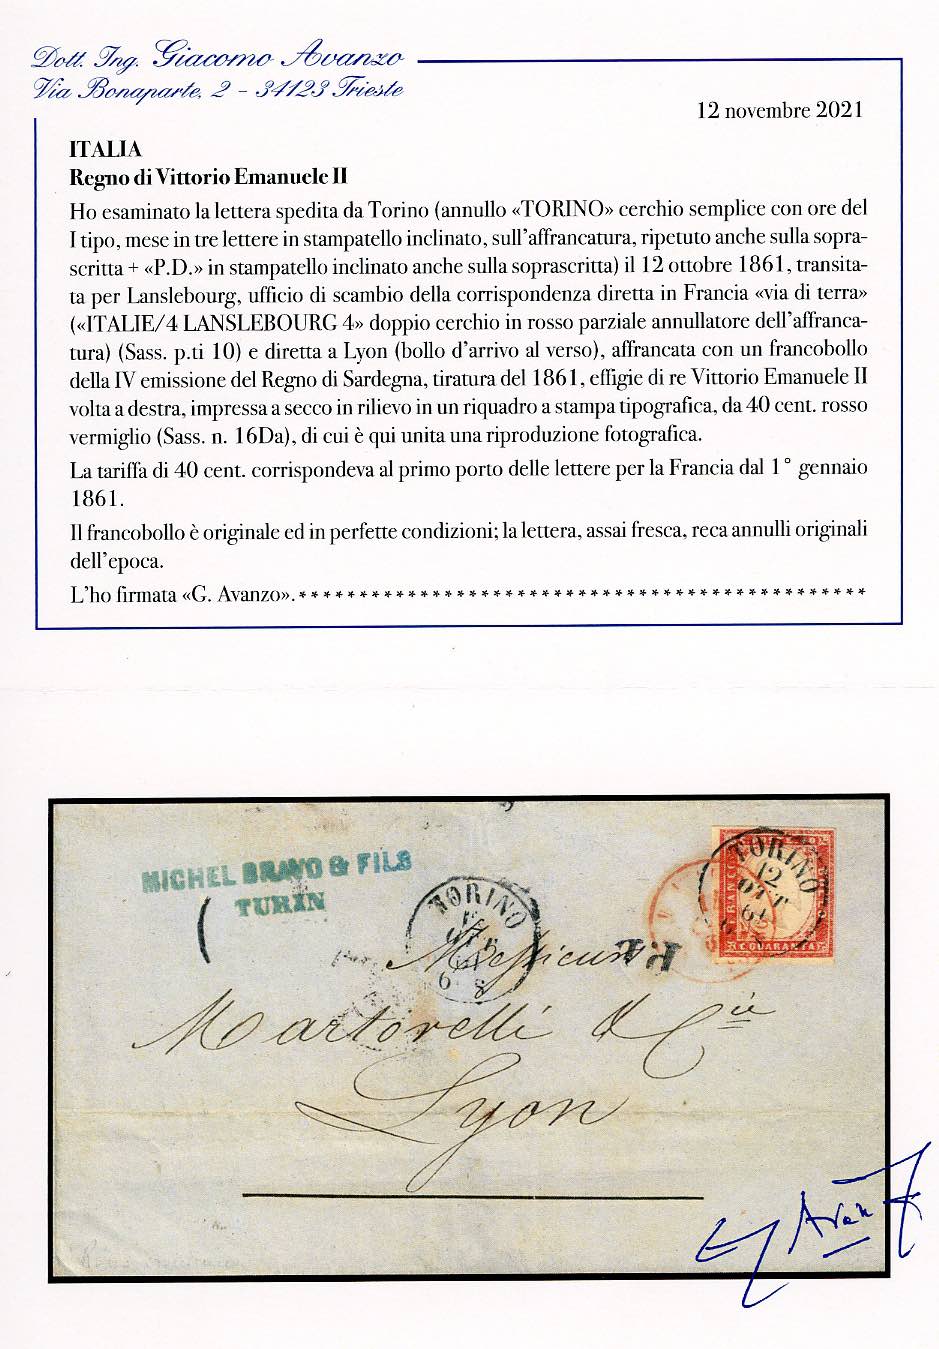 Dott. Ing. Giacomo Avanzo
Via Bonaparte, 2 - 34123 Trieste
12 novembre 2021
ITALIA
Regno di Vittorio Emanuele II
Ho esaminato la lettera spedita da Torino (annullo «TORINO» cerchio semplice con ore del
I tipo, mese in tre lettere in stampatello inclinato, sull'affrancatura, ripetuto anche sulla sopra-
scritta + «P.D.» in stampatello inclinato anche sulla soprascritta) il 12 ottobre 1861, transita-
ta per Lanslebourg, ufficio di scambio della corrispondenza diretta in Francia «via di terra»
(«ITALIE/4 LANSLEBOURG 4» doppio cerchio in rosso parziale annullatore dell'affranca-
tura) (Sass. p.ti 10) e diretta a Lyon (bollo d'arrivo al verso), affrancata con un francobollo
della IV emissione del Regno di Sardegna, tiratura del 1861, effigie di re Vittorio Emanuele II
volta a destra, impressa a secco in rilievo in un riquadro a stampa tipografica, da 40 cent. rosso
vermiglio (Sass. n. 16Da), di cui è qui unita una riproduzione fotografica.
La tariffa di 40 cent. corrispondeva al primo porto delle lettere per la Francia dal 1° gennaio
1861.
Il francobollo è originale ed in perfette condizioni; la lettera, assai fresca, reca annulli originali
dell'epoca.
L'ho firmata «G. Avanzo».***********************************************
MICHEL BRAVO & FILS
TURIN
TORINO
TORINO
12
OTT
61
C. QUARANTA
P.D.
Messieurs
Martorelli & Cie
Lyon